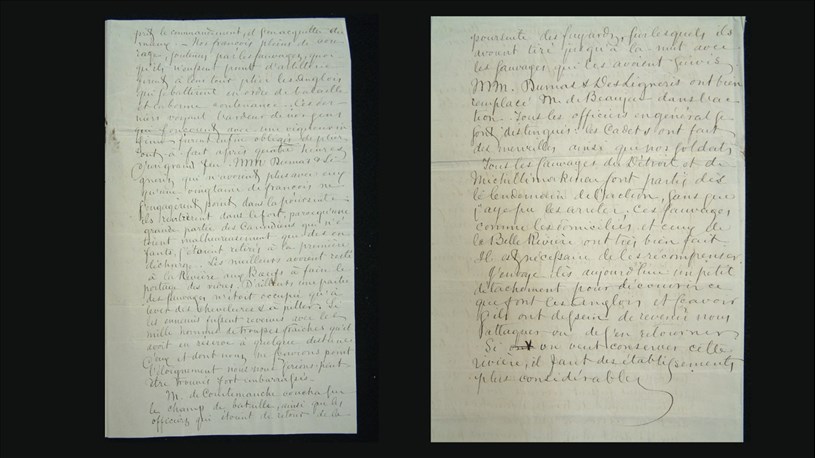 prit le commandement, et s'en acquitta des
mieux. Nos françois pleins de cou-
rage, soutenus par les sauvages, quoi
qu'ils n'eussent point d'artillerie
firent à leur tour plier les Anglois
qui se battirent en ordre de bataille
et en bonne contenance. Ces der-
niers voyant l'ardeur de nos gens
qui fonçoient avec une vigueur in-
finie furent enfin obligés de plier
tout à fait après quatre heures
d'un grand feu. MM Dumas & Lig
qui n'avoient plus avec eux
qu'une vingtaine de françois ne
s'engagèrent point dans la poursuite
ils rentrèrent dans le fort, parce qu'une
grande partie des Canadiens qui n'é-
toient malheureusement que des en-
fants, s'étoient retirés à la première
décharge. Les meilleurs avoient resté
à la Rivière aux Bœufs à faire le
portage des vivres. D'ailleurs une partie
des sauvages n'étoit occupée qu'à
lever des chevelures & à piller. Si
les ennemis fussent revenus avec les
mille hommes de troupes fraîches qu'ils
avoient en réserve à quelque distance
d'eux et dont nous ne savions point
l'éloignement nous nous serions peut
être trouvés fort embarrassés.
M. de Courtemanche coucha sur
le champ de bataille, ainsi que les
officiers qui étoient de retour de la
poursuite des fuyards, sur lesquels ils
avoient tiré jusqu'à la nuit avec
les sauvages qui les avoient suivis.
MM. Dumas & Des Ligneris ont bien
remplacé M. de Beaujeu dans l'ac-
tion. Tous les officiers en général se
sont distingués. Les Cadets ont fait
des merveilles ainsi que nos soldats.
Tous les sauvages du Détroit et de
Michillimakinac sont partis dès
le lendemain de l'action, sans que
j'aye pu les arrêter. Ces sauvages
comme les domiciliés et ceux de
la Belle Rivière ont très bien fait.
Il est nécessaire de les récompenser.
J'envoye dès aujourd'hui un petit
détachement pour découvrir ce
que font les Anglois et sçavoir
s'ils ont dessein de revenir nous
attaquer ou de s'en retourner
Si on veut conserver cette
rivière, il faut des établissements
plus considérables